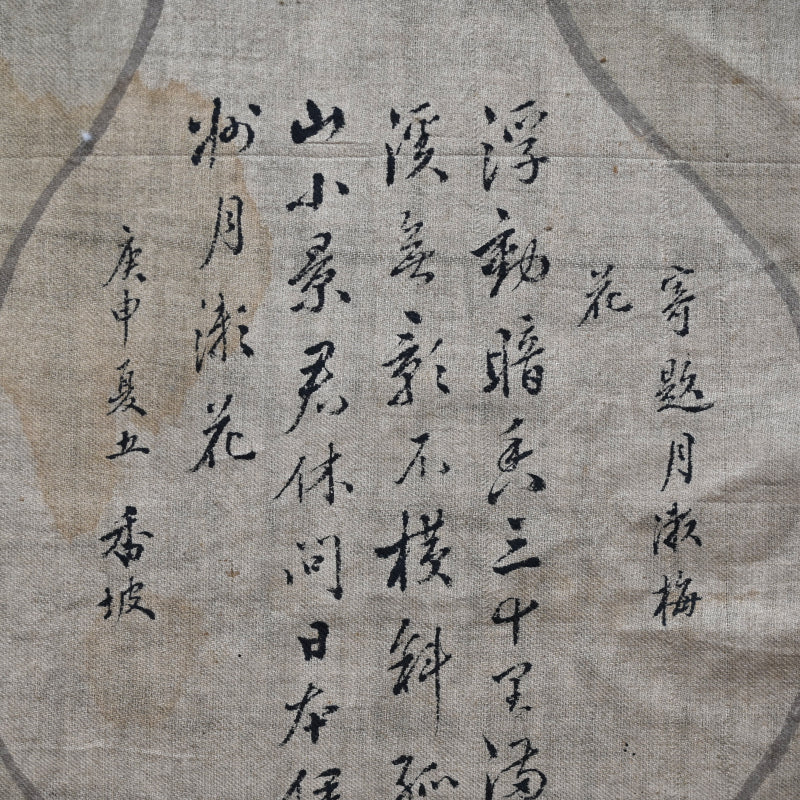 寄題月瀬梅
花
浮動暗香三十里満
渓無影不横斜孤
山小景君休問日本
州月瀬花
庚申夏五 坡